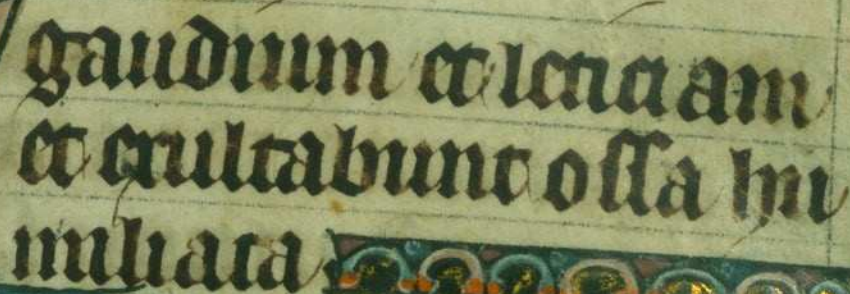 gaudium et leticiam
et exultabunt ossa hu
miliata